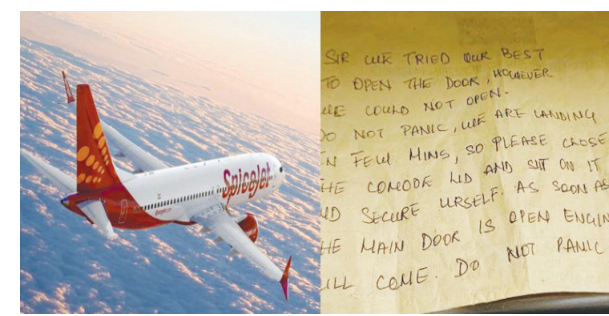 SpiceJet
SIR WE TRIED OUR BEST
TO OPEN THE DOOR, HOWEVER
WE COULD NOT OPEN.
DO NOT PANIC, WE ARE LANDING
IN FEW MINS, SO PLEASE CLOSE
HE COMODE LID AND SIT ON IT
ND SECURE URSELF. AS SOON AS
HE MAIN DOOR IS OPEN ENGIN
ILL COME. DO NOT PANIC